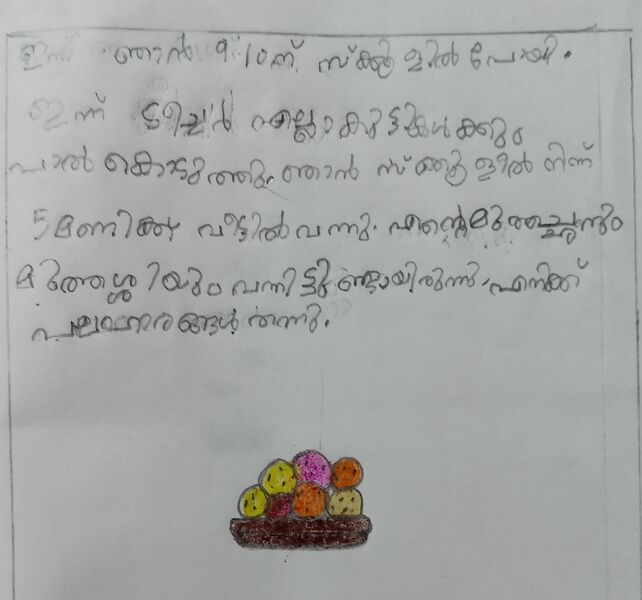 ഇന്ന് ഞാൻ 9.10ന് സ്കൂളിൽ പോയി.
ഇന്ന് ടീച്ചർ എല്ലാ കുട്ടികൾക്കും
പാൽ കൊടുത്തു. ഞാൻ സ്കൂളിൽ നിന്ന്
5 മണിക്ക് വീട്ടിൽ വന്നു. എന്റെ മുത്തച്ഛനും
മുത്തശ്ശിയും വന്നിട്ടുണ്ടായിരുന്നു. എനിക്ക്
പലഹാരങ്ങൾ തന്നു.